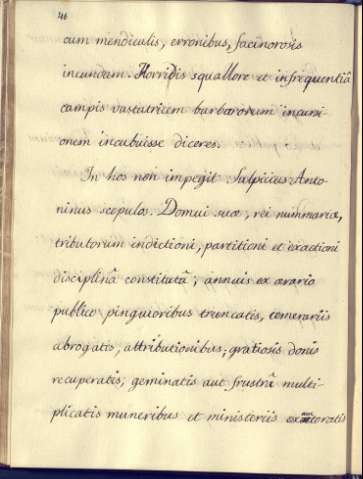 46
cum mendiculis, erronibus, facinorosis
incundam. Horridis squallore et infrequentiâ
campis vastatricem barbarorum incursi-
onem incubuisse diceres.
In hos non impegit Sulpicius Anto-
ninus scopulos. Domui suæ, rei nummariæ,
tributorum indictioni, partitioni et exactioni
disciplinâ constitutâ; annuis ex ærario
publico pinguioribus truncatis, temerariis
abrogatis, attributionibus; gratiosis donis
recuperatis; geminatis aut frustrâ multi-
plicatis muneribus et ministeriis